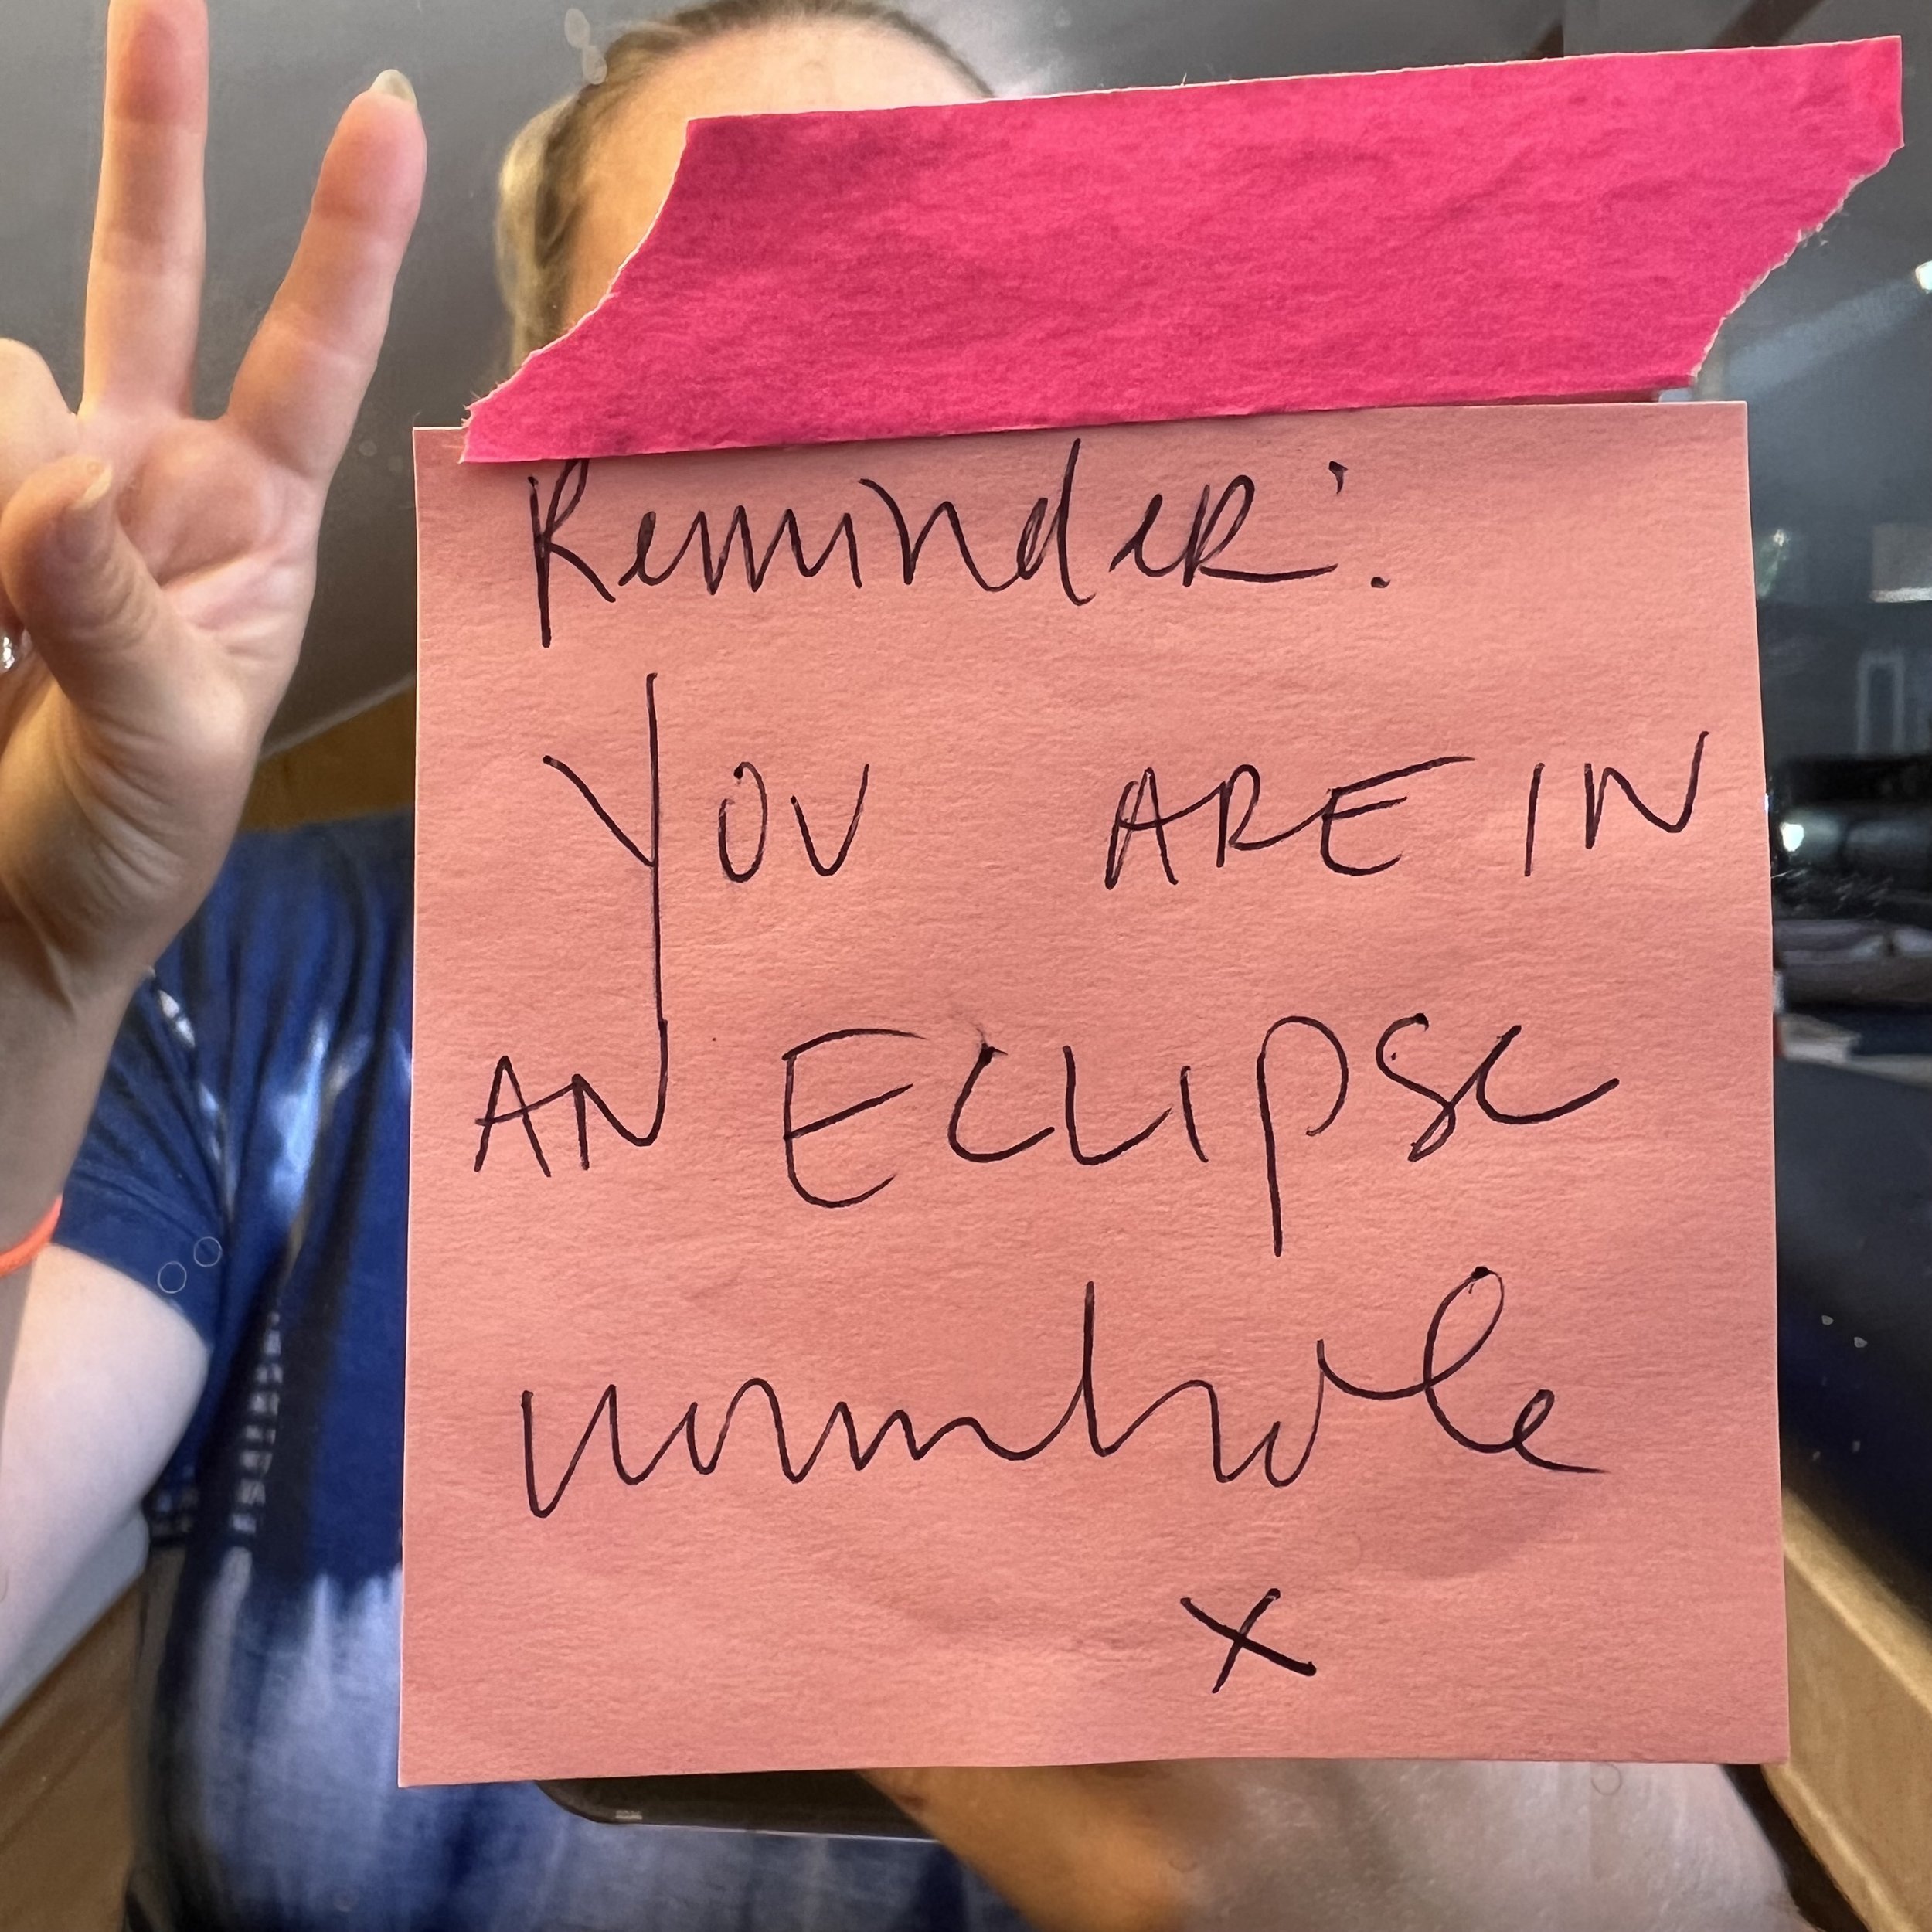 Reminder:
YOU ARE IN
AN ECLIPSE
wormhole
x